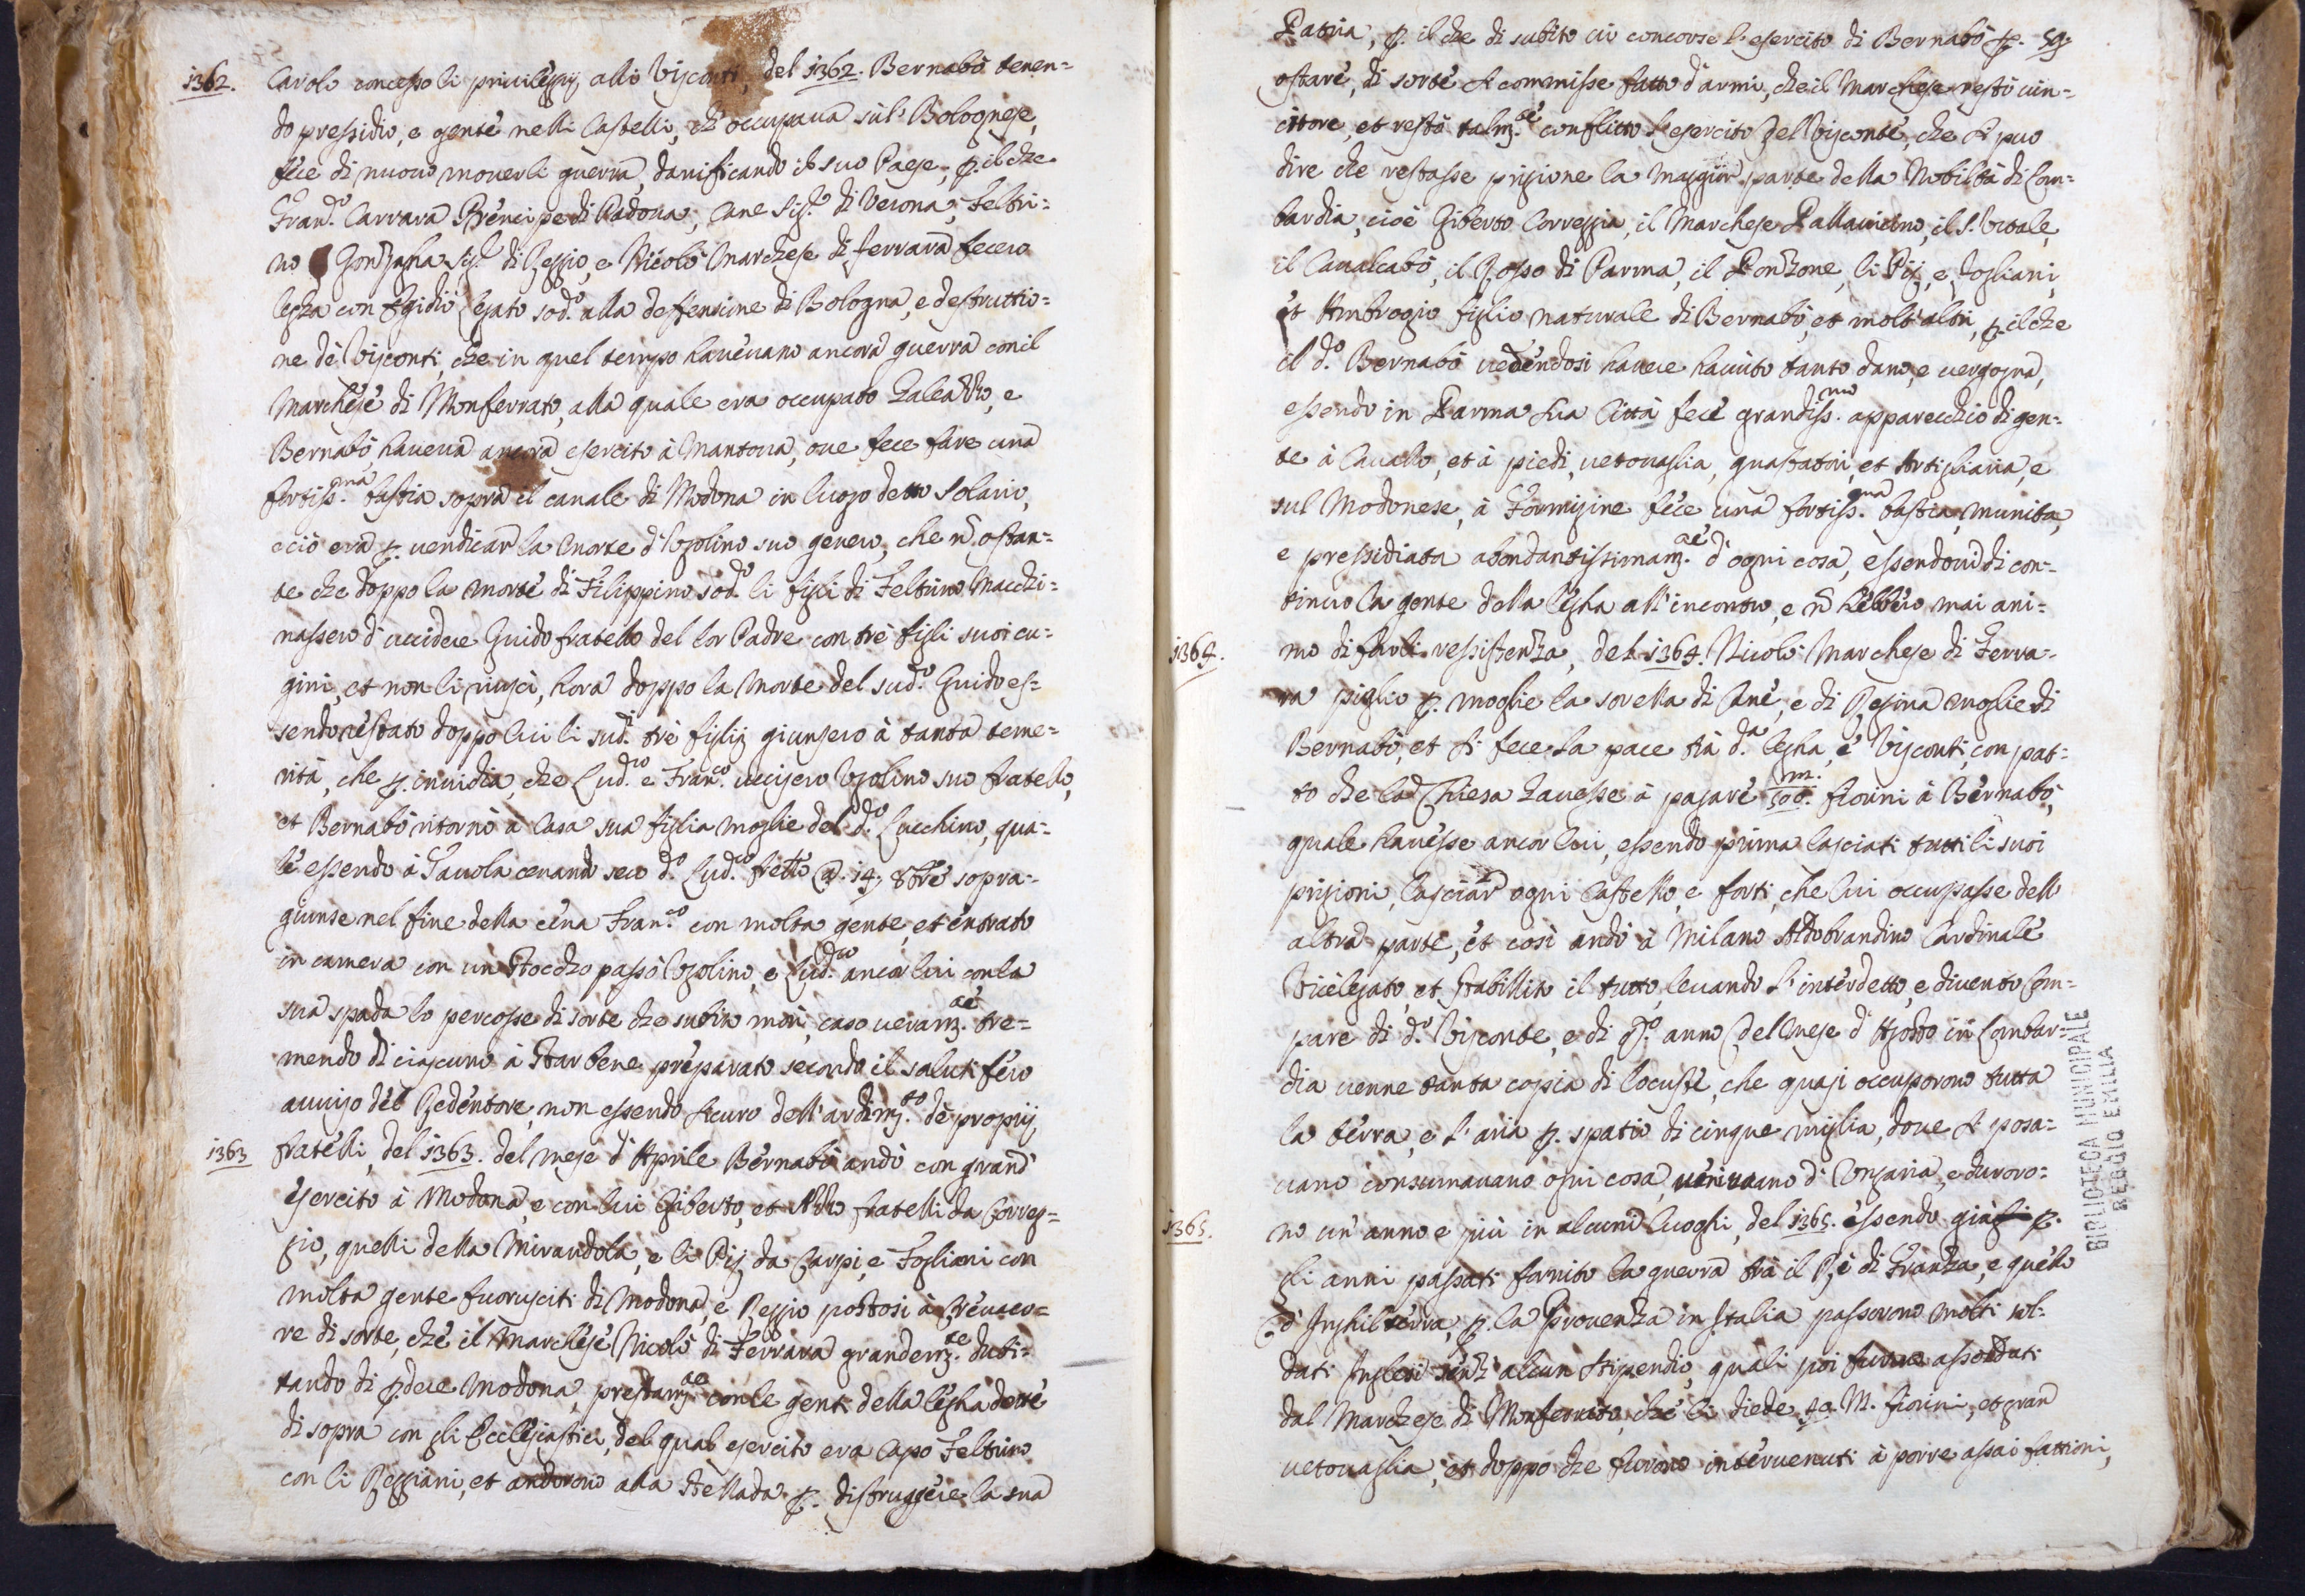 1362. Carolo concesso li priuileggij alli Visconti, del 1362. Bernabò tenen=
do pressidio, e gente nelli Castelli, ch' occupaua sul Bolognese,
fece di nuouo mouerli guerra, danificando il suo Paese, p. il che
Fran.do Carrara Prencipe di Padoua, Cane Sig.r di Verona, Feltri=
no Gonzagha Sig.r di Reggio, e Nicolò Marchese di Ferrara fecero
legha con Egidio Legato sod.o alla deffensione di Bologna, e destruttio=
ne de Visconti, che in quel tempo haueuano ancora guerra con il
Marchese di Monferrato, alla quale era occupato Galeazzo, e
Bernabò haueua ancora esercito à Mantoua, oue fece fare una
fortiss.ma bastia sopra il canale di Modona in luogo detto Solario,
e ciò era p. uendicar la morte d' Vgolino suo genero, che nõ ostan=
te che doppo la morte di Filippino sod.o li figli di Feltrino Macchi=
nassero d' uccidere Guido fratello del lor Padre con tre figli suoi cu=
gini, et non li riuscì, hora doppo la Morte del sud.o Guido es=
sendo restato doppo lui li sud.i tre figlij giunsero à tanta teme=
rità, che p. inuidia, che Lud.co e Fran.co uccisero Vgolino suo fratello,
et Bernabò ritornò à Casa sua figlia moglie del d.o Lucchino, qua=
le essendo à Tauola cenando seco d.o Lud.co fretto a. 14, 8bre sopra=
giunse nel fine della cena Fran.co con molta gente, et entrato
in camera con un Stoccho passò Vgolino, e Lud.co ancor lui con la
sua spada lo percosse di sorte che subito morì, caso ueram.te tre=
mendo di ciascuno à star bene preparato secondo il salutifero
auuiso del Redentore, non essendo sicuro dell' ardim.to de proprij
1363 fratelli, del 1363. del mese d' Aprile Bernabò andò con grand'
esercito à Modona, e con lui Giberto, et Azzo fratelli da Correg=
gio, quelli della Mirandola, e li Pij da Carpi, e Fogliani con
molta gente fuorusciti di Modona, e Reggio postosi à Creuaco=
re di sorte, che il Marchese Nicolò di Ferrara grandem.te dubi=
tando di p.dere Modona, prestam.te con le genti della legha dette
di sopra con gli Ecclesiastici, del qual esercito era Capo Feltrino
con li Reggiani, et andorono alla Stellada p. distruggere la sua
Patria, p. il che di subito ciò concorse l' esercito di Bernabò p. 59
ostare, di sorte si commisse fatto d' armi, che il Marchese restò uin=
citore, et restò talm.te conflitto l' esercito del Visconte, che si può
dire che restasse prigione la maggior parte della Nobiltà di Lom=
bardia, cioè Giberto Correggia, il Marchese Pallauicino, il S. Vitale,
il Caualcabò, il Rosso di Parma, il Ponzone, li Pij, e Fogliani,
et Ambrogio figlio naturale di Bernabò, et molt' altri, p. il che
il d.o Bernabò uedendosi hauere hauuto tanto dano, e uergogna,
essendo in Parma sua Città fece grandiss.mo apparecchio di gen=
te à Cauallo, et à piedi, uetouaglia, guastatori, et Artigliaria, e
sul Modonese, à Formigine fece una fortiss.ma bastia, munita,
e pressidiata abondantissimam.te d' ogni cosa, essendoui di con=
tinuo la gente della legha all' incontro, e nõ hebbero mai ani=
1364. mo di farli ressistenza, del 1364. Nicolò Marchese di Ferra=
ra pigliò p. moglie la sorella di Cane, e di Regina moglie di
Bernabò, et si fece la pace trà d.a legha, e Visconti, con pat=
to che la Chiesa hauesse à pagare 500.m. fiorini à Bernabò,
quale hauesse ancor lui, essendo prima lasciati tutti li suoi
prigioni, lasciar ogni Castello, e forti, che lui occupasse dell
altra parte, et così andò à Milano Aldobrandino Cardinale
Vicelegato, et stabillito il tutto, leuando l' interdetto, e diuentò Com=
pare di d.o Visconte, e di q.o anno del mese d' Agosto in Lombar=
dia uenne tanta copia di locuste, che quasi occuporono tutta
la terra, e l' aria p. spatio di cinque miglia, doue si posa=
uano consumauano ogni cosa, ueniuano d' Ongaria, e duroro=
1365. no un' anno e più in alcuni luoghi, del 1365. essendo già p.
gli anni passati fornito la guerra trà il Rè di Franza, e quello
d' Inghilterra, p. la Prouenza in Italia passorono molti sol=
dati Inglesi senz' alcun stipendio, quali poi furono assoldati
dal Marchese di Monferrato, che li diede M. fiorini, et gran
uetouaglia, et doppo che furono interuenuti à porre assai fattioni,
BIBLIOTECA MUNICIPALE
REGGIO EMILIA